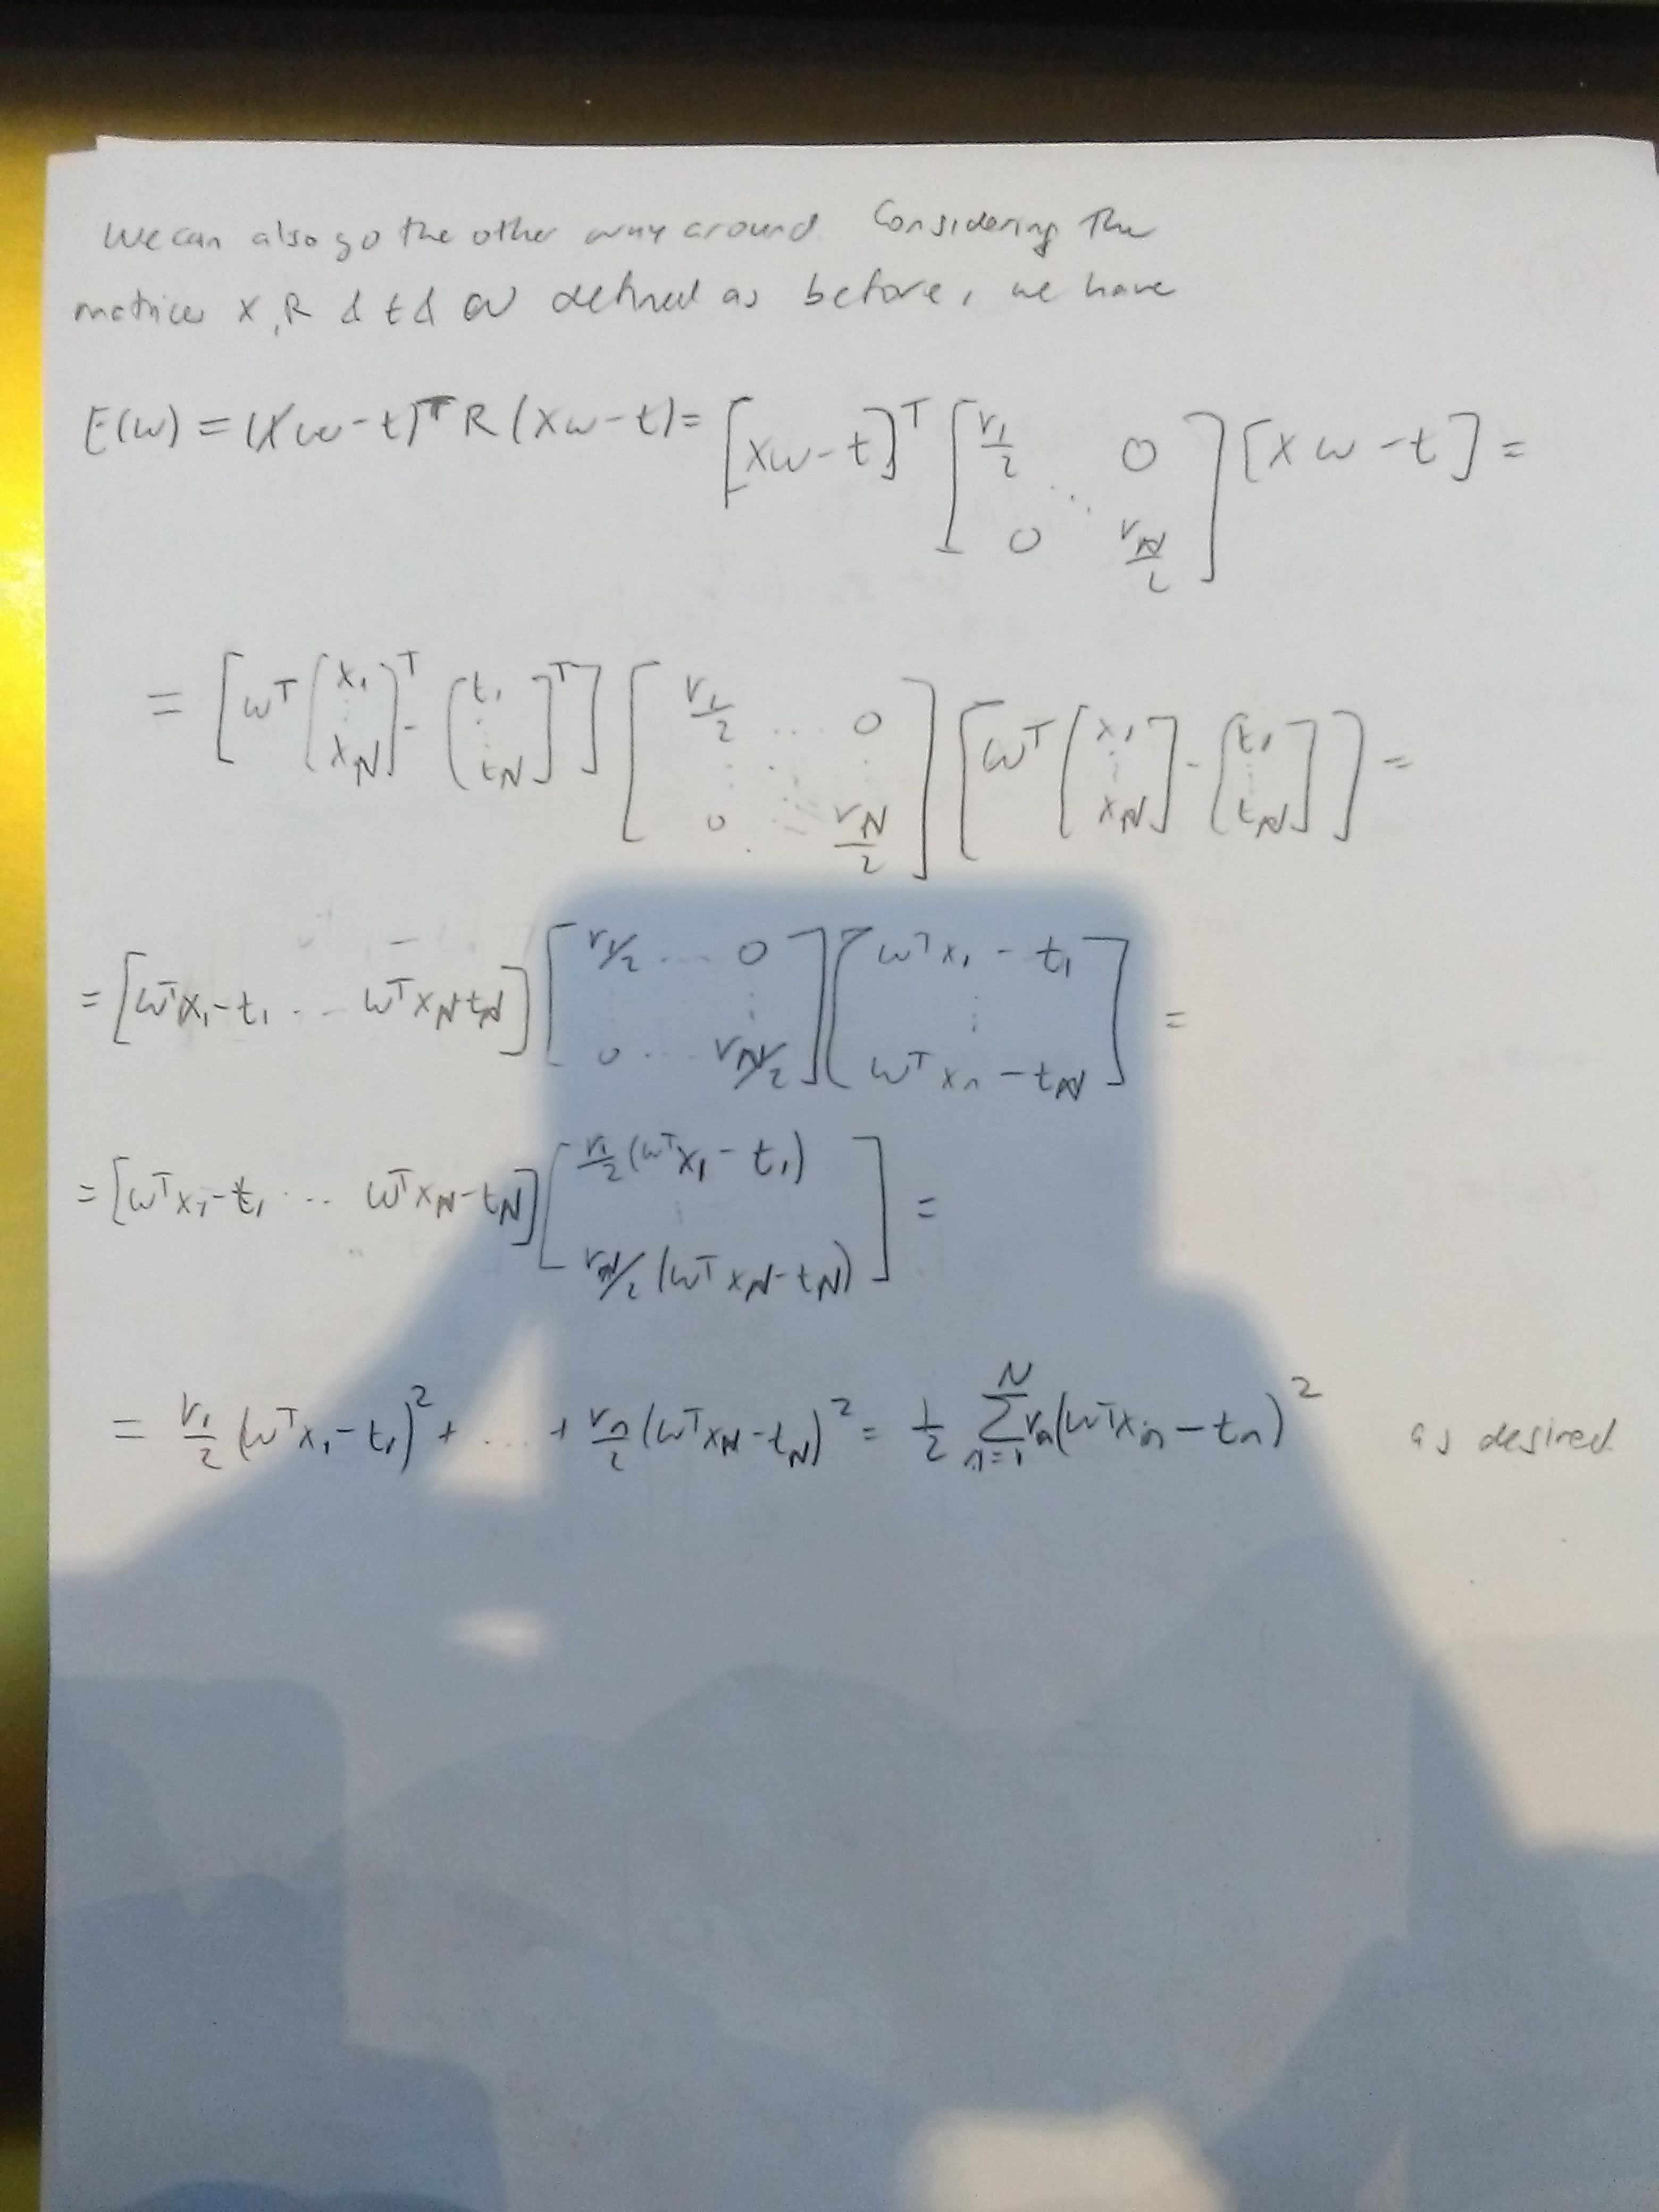 We can also go the other way around. Considering the
matrices X, R & t & w defined as before, we have
E(w) = (Xw - t)ᵀ R (Xw - t) = [Xw - t]ᵀ [r₁/2 0 ⋱ 0 r_N/2] [Xw - t] =
= [wᵀ [x₁ ⋮ x_N]ᵀ - [t₁ ⋮ t_N]ᵀ] [r₁/2 … 0 ⋮ ⋱ ⋮ 0 r_N/2] [wᵀ [x₁ ⋮ x_N] - [t₁ ⋮ t_N]] =
= [wᵀx₁ - t₁ … wᵀx_N t_N] [r₁/2 … 0 ⋮ ⋮ 0 … r_N/2] [wᵀx₁ - t₁ ⋮ wᵀx_n - t_N] =
= [wᵀx₁ - t₁ … wᵀx_N - t_N] [r₁/2 (wᵀx₁ - t₁) ⋮ r_N/2 (wᵀx_N - t_N)] =
= r₁/2 (wᵀx₁ - t₁)² + … + r_n/2 (wᵀx_N - t_N)² = 1/2 ∑_{n=1}^{N} r_n (wᵀx_n - t_n)² as desired.